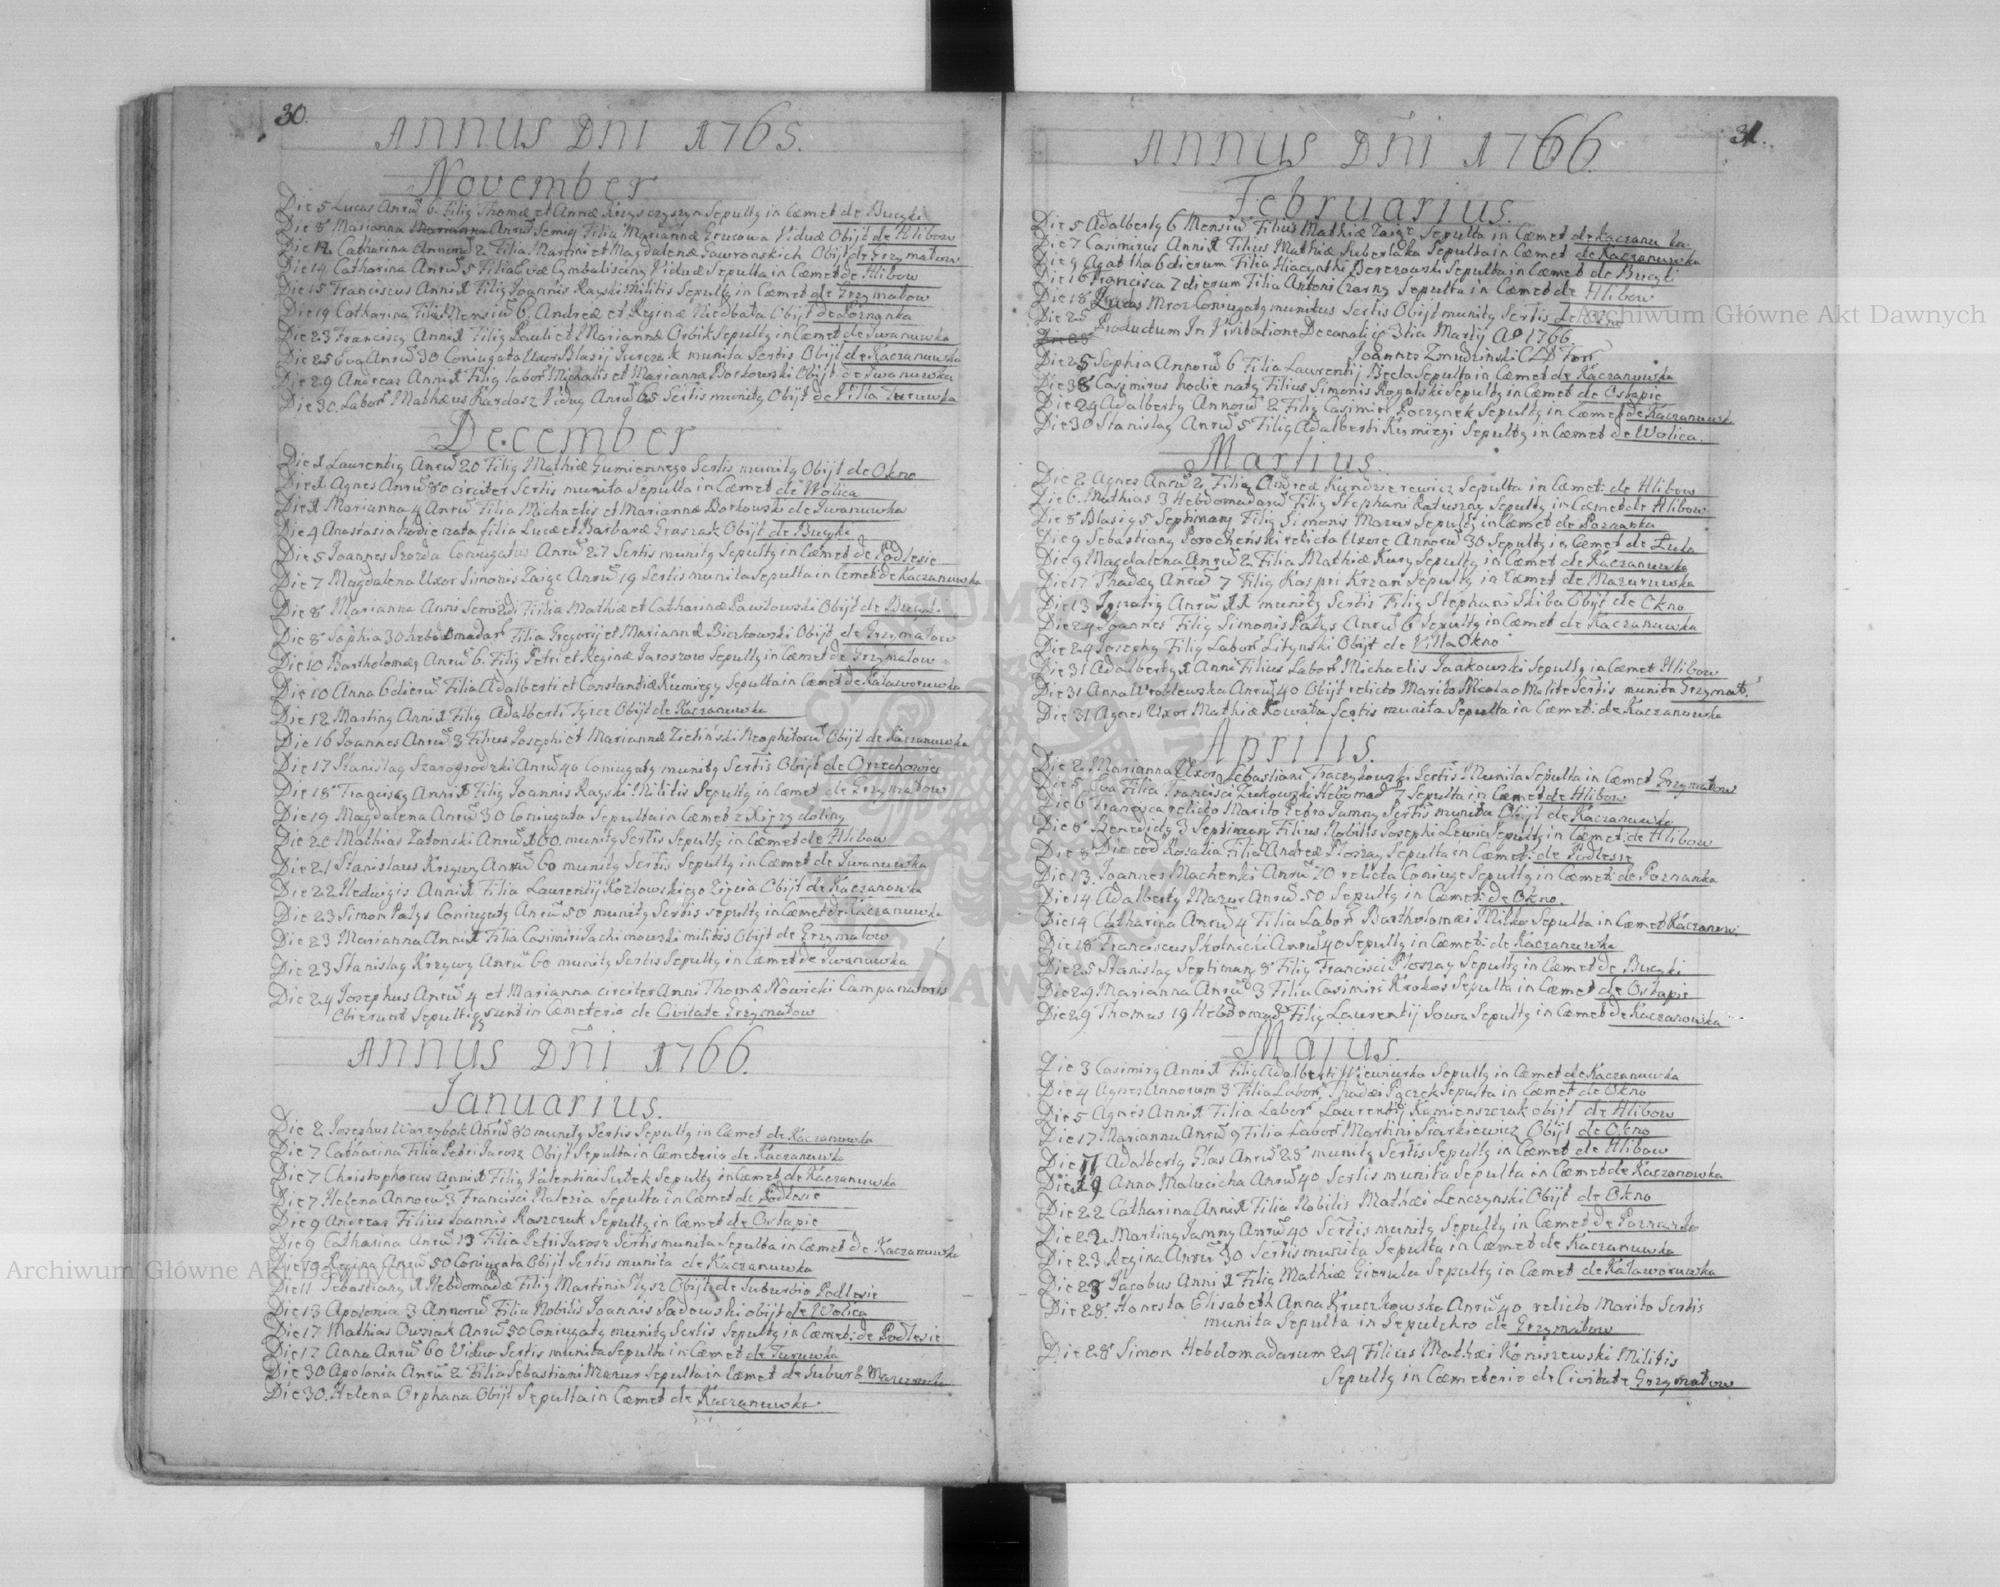 30.
ANNUS DNI 1765.
November
Die 5 Lucas Anrũ 6. Filig Thomæ et Annæ Krzysczyszyn Sepultg in Cæmet de Bucyki
Die 8 Marianna Marianna Anrũ Semis Filia Mariannæ Grucowa Viduæ Obijt de Hlibow
Die 12 Catharina Annorũ 2 Filia Martini et Magdalenæ Gawronskich Obijt de Grzymałow
Die 14 Catharina Anrũ 5 Filia Evæ Cymbalisciny Viduæ Sepulta in Cæmet de Hlibow
Die 15 Franciscus Anni 1 Filig Joannis Rayski Militis Sepultg in Cæmet de Grzymałow
Die 19 Catharina Filia Mensiũ 6. Andreæ et Reginæ Niedbała Obijt de Poznanka
Die 23 Franciscg Anni 1 Filig Pauli et Mariannæ Orbik Sepultg in Cæmet de Iwanuwka
Die 25 Eva Anrũ 30 Coniugata Uxor Blasij Jurczak munita Sertis Obijt de Kaczanuwka
Die 29 Andreas Anni 1 Filig labor Michalis et Mariannæ Borkowski Obijt de Iwanuwka
Die 30. Labor Mathæus Kardasz Vidug Anrũ 65 Sertis munitg Obijt de Villa Turuwka
December
Die 1 Laurentig Anrũ 20 Filig Mathiæ Gumiennego Sertis munitg Obijt de Okno
Die 1 Agnes Anrũ 80 circiter Sertis munita Sepulta in Cæmet de Wolica
Die 1 Marianna 4 Anrũ Filia Michaelis et Mariannæ Borkowski de Iwanuwka
Die 4 Anastasia hodie nata filia Lucæ et Barbaræ Eraszak Obijt de Bucyki
Die 5 Joannes Szorda Coniugatus Anrũ 27 Sertis munitg Sepultg in Cæmet de Podlesie
Die 7 Magdalena Uxor Simonis Zaiąc Anrũ 19 Sertis munita Sepulta in Cæmet de Kaczanuwka
Die 8 Marianna Anni Semiadi Filia Mathiæ et Catharinæ Pawłowski Obijt de Bucyki
Die 8 Sophia 30 hebdomadar Filia Gregorij et Mariannæ Biczkowski Obijt de Grzymałow
Die 10 Bartholomæg Anrũ 6. Filig Petri et Reginæ Jaroszow Sepultg in Cæmet de Grzymałow
Die 10 Anna 6 dierũ Filia Adalberti et Constantiæ Kuzmięgy Sepulta in Cæmet de Kaławoruwka
Die 12 Marting Anni 1 Filig Adalberti Tyrcz Obijt de Kaczanuwka
Die 16 Joannes Anrũ 3 Filius Josephi et Mariannæ Zieliński Neophitorũ Obijt de Kaczanuwka
Die 17 Stanislag Szarogrodzki Anrũ 40 Coniugatg munitg Sertis Obijt de Orzechowiec
Die 18 Franciscg Anni 1 Filig Joannis Rayski Militis Sepultg in Cæmet de Grzymałow
Die 19 Magdalena Anrũ 30 Coniugata Sepulta in Cæmet z Xięzy doliny
Die 20 Mathias Zatonski Anrũ 100. munitg Sertis Sepultg in Cæmet de Hlibow
Die 21 Stanislaus Krzywy Anrũ 60 munitg Sertis Sepultg in Cæmet de Iwanuwka
Die 22 Hedwigis Anni 1 Filia Laurentij Kozlowskiego Zięcia Obijt de Kaczanowka
Die 23 Simon Pałys Coniugatg Anrũ 50 munitg Sertis sepultg in Cæmet de Kaczanuwka
Die 23 Marianna Anni 1 Filia Casimiri Jachimowski militis Obijt de Grzymałow
Die 23 Stanislag Krzywy Anrũ 60 munitg Sertis Sepultg in Cæmet de Iwanuwka
Die 24 Josephus Anrũ 4 et Marianna circiter Anni Thomæ Nowicki Campanatoris
Obierunt Sepultiq sunt in Cæmeterio de Civitate Grzymałow
ANNUS DÑI 1766.
Januarius.
Die 2 Josephus Warzybok Anrũ 80 munitg Sertis Sepultg in Cæmet de Kaczanuwka
Die 7 Catharina Filia Petri Jarosz Obijt Sepulta in Cæmeterio de Kaczanuwka
Die 7 Christophorus Anni 1 Filig Valentini Sutek Sepultg in Cæmet de Kaczanuwka
Die 7 Helena Annorũ 3 Francisci Nalezia Sepulta in Cæmet de Podlesie
Die 9 Andreas Filius Joannis Raszczuk Sepultg in Cæmet de Ostapie
Die 9 Catharina Anrũ 13 Filia Petri Jarosz Sertis munita Sepulta in Cæmet de Kaczanuwka
Die 19 Regina Anrũ 50 Coniugata Obijt Sertis munita de Kaczanuwka
Die 11 Sebastiang 1 Hebdomadæ Filig Martini Łysz Obijt de Suburbio Podlesie
Die 13 Apolonia 3 Annorũ Filia Nobilis Joannis Sadowski obijt de Wolica
Die 17 Mathias Owsiak Anrũ 50 Coniugatg munitg Sertis Sepultg in Cæmet: de Podlesie
Die 12 Anna Anrũ 60 Vidua Sertis munita Sepulta in Cæmet de Turuwka
Die 30 Apolonia Anrũ 2 Filia Sebastiani Mazur Sepulta in Cæmet de Suburb Mazuruwka
Die 30. Helena Orphana Obijt Sepulta in Cæmet de Kaczanuwka
31.
ANNUS DÑI 1766.
Februarius.
Die 5 Adalbertg 6 Mensiũ Filius Mathiæ Zaiąc Sepulta in Cæmet de Kaczanuwka
Die 7 Casimirus Anni 1 Filius Mathiæ Suberlaka Sepulta in Cæmet de Kaczanuwka
Die 9 Agatha 6 dierum Filia Hiacynthi Berezowski Sepulta in Cæmet de Bucyki
Die 16 Francisca 7 dierum Filia Antoni Czarny Sepulta in Cæmet de Hlibow
Die 18 Lucas Mroz Coniugatg munitus Sertis Obijt munitg Sertis de Okno
Die 25 Productum In Visitatione Decanali die 3tia Martij Ao 1766
Joannes Zmudzinski CLD For
Die 25 Sophia Annorũ 6 Filia Laurentij Becla Sepulta in Cæmet de Kaczanuwka
Die 38 Casimirus hodie natg Filius Simonis Rogalski Sepultg in Cæmet de Ostapie
Die 24 Adalbertg Annorũ 2 Filig Casimiri Poczynek Sepultg in Cæmet de Kaczanuwk
Die 30 Stanislag Anrũ 5 Filig Adalberti Kuzmięgi Sepultg in Cæmet de Wolica.
Martius.
Die 2 Agnes Anrũ 2 Filia Andreæ Kundzierewicz Sepulta in Cæmet: de Hlibow
Die 6. Mathias 3 Hebdomadarũ Filig Stephani Ratuszny Sepultg in Cæmet de Hlibow
Die 8 Blasig 5 Septimang Filig Simonis Mazur Sepultg in Cæmet de Poznanka
Die 9 Sebastiang Porochenski relicta Uxore Annorũ 30 Sepultg in Cæmet de Luka
Die 9 Magdalena Anrũ 2 Filia Mathiæ Kury Sepultg in Cæmet de Kaczanuwka
Die 17 Thadæg Anrũ 7 Filig Kaspri Krzan Sepultg in Cæmet de Mazuruwka
Die 13 Ignatig Anrũ 11 munitg Sertis Filig Stephani Skiba Obijt de Okno
Die 24 Joannes Filig Simonis Pałys Anrũ 6 Sepultg in Cæmet de Kaczanuwka
Die 24 Josephg Filig Labor Litynski Obijt de Villa Okno
Die 31 Adalbertg 1 Anni Filius Labor Michaelis Jankowski Sepultg in Cæmet Hlibow
Die 31 Anna Wroblewska Anrũ 40 Obijt relicto Marito Nicolao Milite Sertis munita Grzymał.
Die 31 Agnes Uxor Mathiæ Kowala Sertis munita Sepulta in Cæmet: de Kaczanuwka
Aprilis.
Die 2 Marianna Uxor Sebastiani Traczykowski Sertis Munita Sepulta in Cæmet Grzymałow
Die 5 Eva Filia Francisci Zukowski Hebdomad 7 Sepulta in Cæmet de Hlibow
Die 6 Francisca relicto Marito Petro Jamny Sertis munita Obijt de Kaczanuwka
Die 8 Benedictg 3 Septimang Filius Nobilis Josephi Lewicki Sepultg in Cæmet: de Hlibow
Die 8 Die eod Rosalia Filia Andreæ Płoszay Sepulta in Cæmet: de Podlesie
Die 13. Joannes Machenki Anrũ 70 relicta Coniuge Sepultg in Cæmet: de Poznanka
Die 14 Adalbertg Mazur Anrũ 50 Sepultg in Cæmet: de Okno.
Die 14 Catharina Anrũ 4 Filia Labor Bartholomæi Miłka Sepulta in Cæmet Kaczanuw:
Die 18 Franciscus Skolnicki Anrũ 40 Sepultg in Cæmet: de Kaczanuwka
Die 25 Stanislag Septimang 8 Filig Francisci Płoszay Sepultg in Cæmet de Bucyki
Die 29 Marianna Anrũ 3 Filia Casimiri Krokos Sepulta in Cæmet de Ostapie
Die 29 Thomas 19 Hebdomad Filig Laurentij Sowa Sepultg in Cæmet de Kaczanowka
Majus.
Die 3 Casimirg Anni 1 Filig Adalberti Wiewiurka Sepultg in Cæmet de Kaczanuwka
Die 4 Agnes Annorum 3 Filia Labor Thadæi Pączek Sepulta in Cæmet de Okno
Die 5 Agnes Anni 1 Filia Labor Laurentij Kamienszczuk obijt de Hlibow
Die 17 Marianna Anrũ 9 Filia Labor Martini Siarkiewicz Obijt de Okno
Die 11 Adalbertg Głas Anrũ 28 munitg Sertis Sepultg in Cæmet de Hlibow
Die 19 Anna Malucicha Anrũ 40 Sertis munita Sepulta in Cæmet de Kaczanowka
Die 22 Catharina Anni 1 Filia Nobilis Mathæi Lenczynski Obijt de Okno
Die 22 Marting Jamny Anrũ 40 Sertis munitg Sepultg in Cæmet de Poznanka
Die 23 Regina Anrũ 30 Sertis munita Sepulta in Cæmet de Kaczanuwka
Die 23 Jacobus Anni 1 Filig Mathiæ Gierula Sepultg in Cæmet de Kaławoruwka
Die 28 Honesta Elisabeth Anna Kruczkowska Anrũ 40 relicto Marito Sertis
munita Sepulta in Sepulchro de Grzymałow
Die 28 Simon Hebdomadarum 24 Filius Mathæi Koniszewski Militis
Sepultg in Cæmeterio de Civitate Grzymałow
Archiwum Główne Akt Dawnych
Archiwum Główne Akt Dawnych